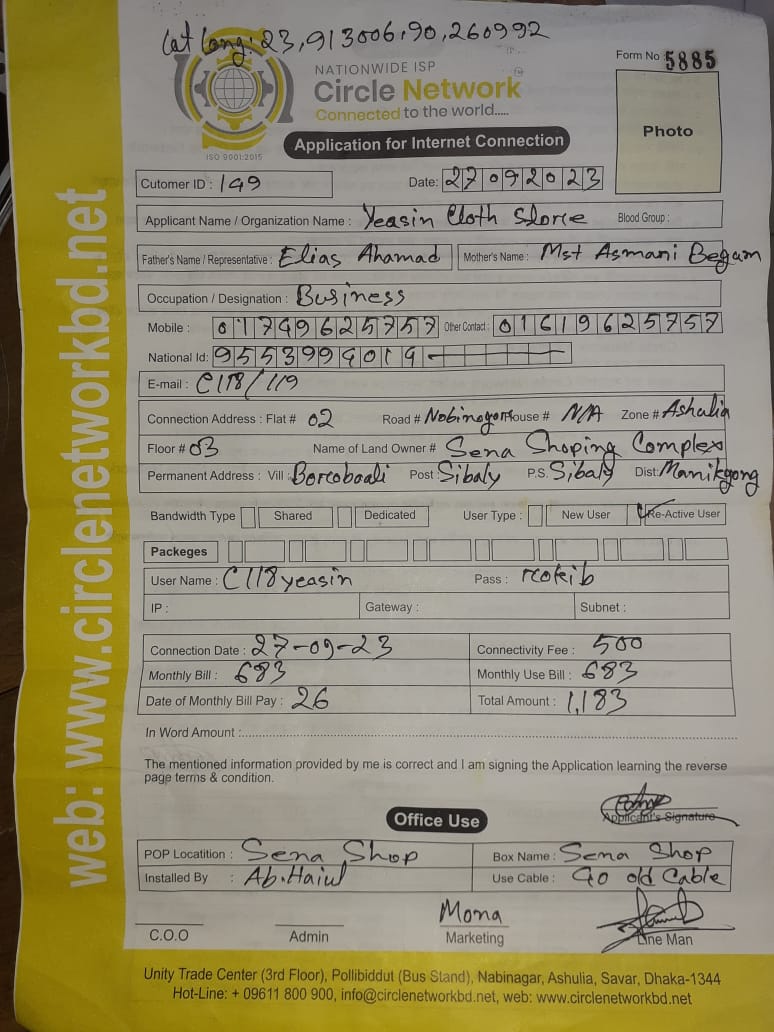 Lat long: 23,913006,90,260992
Form No 5885
NATIONWIDE ISP
Circle Network
Connected to the world.....
ISO 9001:2015
Application for Internet Connection
Photo
Cutomer ID : 149 Date: 27092023
Applicant Name / Organization Name : Yeasin Cloth Storce Blood Group :
Father's Name / Representative : Elias Ahamad Mother's Name : Mst Asmani Begum
Occupation / Designation : Business
Mobile : 01749625757 Other Contact : 01619625757
National Id: 9553994019
E-mail : C118/119
Connection Address : Flat # 02 Road # Nobinogor House # N/A Zone # Ashulia
Floor # 03 Name of Land Owner # Sena Shoping Complex
Permanent Address : Vill : Post : Sibaly P.S. Sibaly Dist: Manikgong
Bandwidth Type Shared Dedicated User Type : New User Re-Active User
Packeges
User Name : C118yeasin Pass : rcokib
IP : Gateway : Subnet :
Connection Date : 27-09-23 Connectivity Fee : 500
Monthly Bill : 683 Monthly Use Bill : 683
Date of Monthly Bill Pay : 26 Total Amount : 1,183
In Word Amount :
The mentioned information provided by me is correct and I am signing the Application learning the reverse
page terms & condition.
Applicant's Signature
Office Use
POP Locatition : Sena Shop Box Name : Sena Shop
Installed By : Ab. Haiul Use Cable : 90 old Cable
Mona
C.O.O Admin Marketing Line Man
Unity Trade Center (3rd Floor), Pollibiddut (Bus Stand), Nabinagar, Ashulia, Savar, Dhaka-1344
Hot-Line: + 09611 800 900, info@circlenetworkbd.net, web: www.circlenetworkbd.net
web: www.circlenetworkbd.net